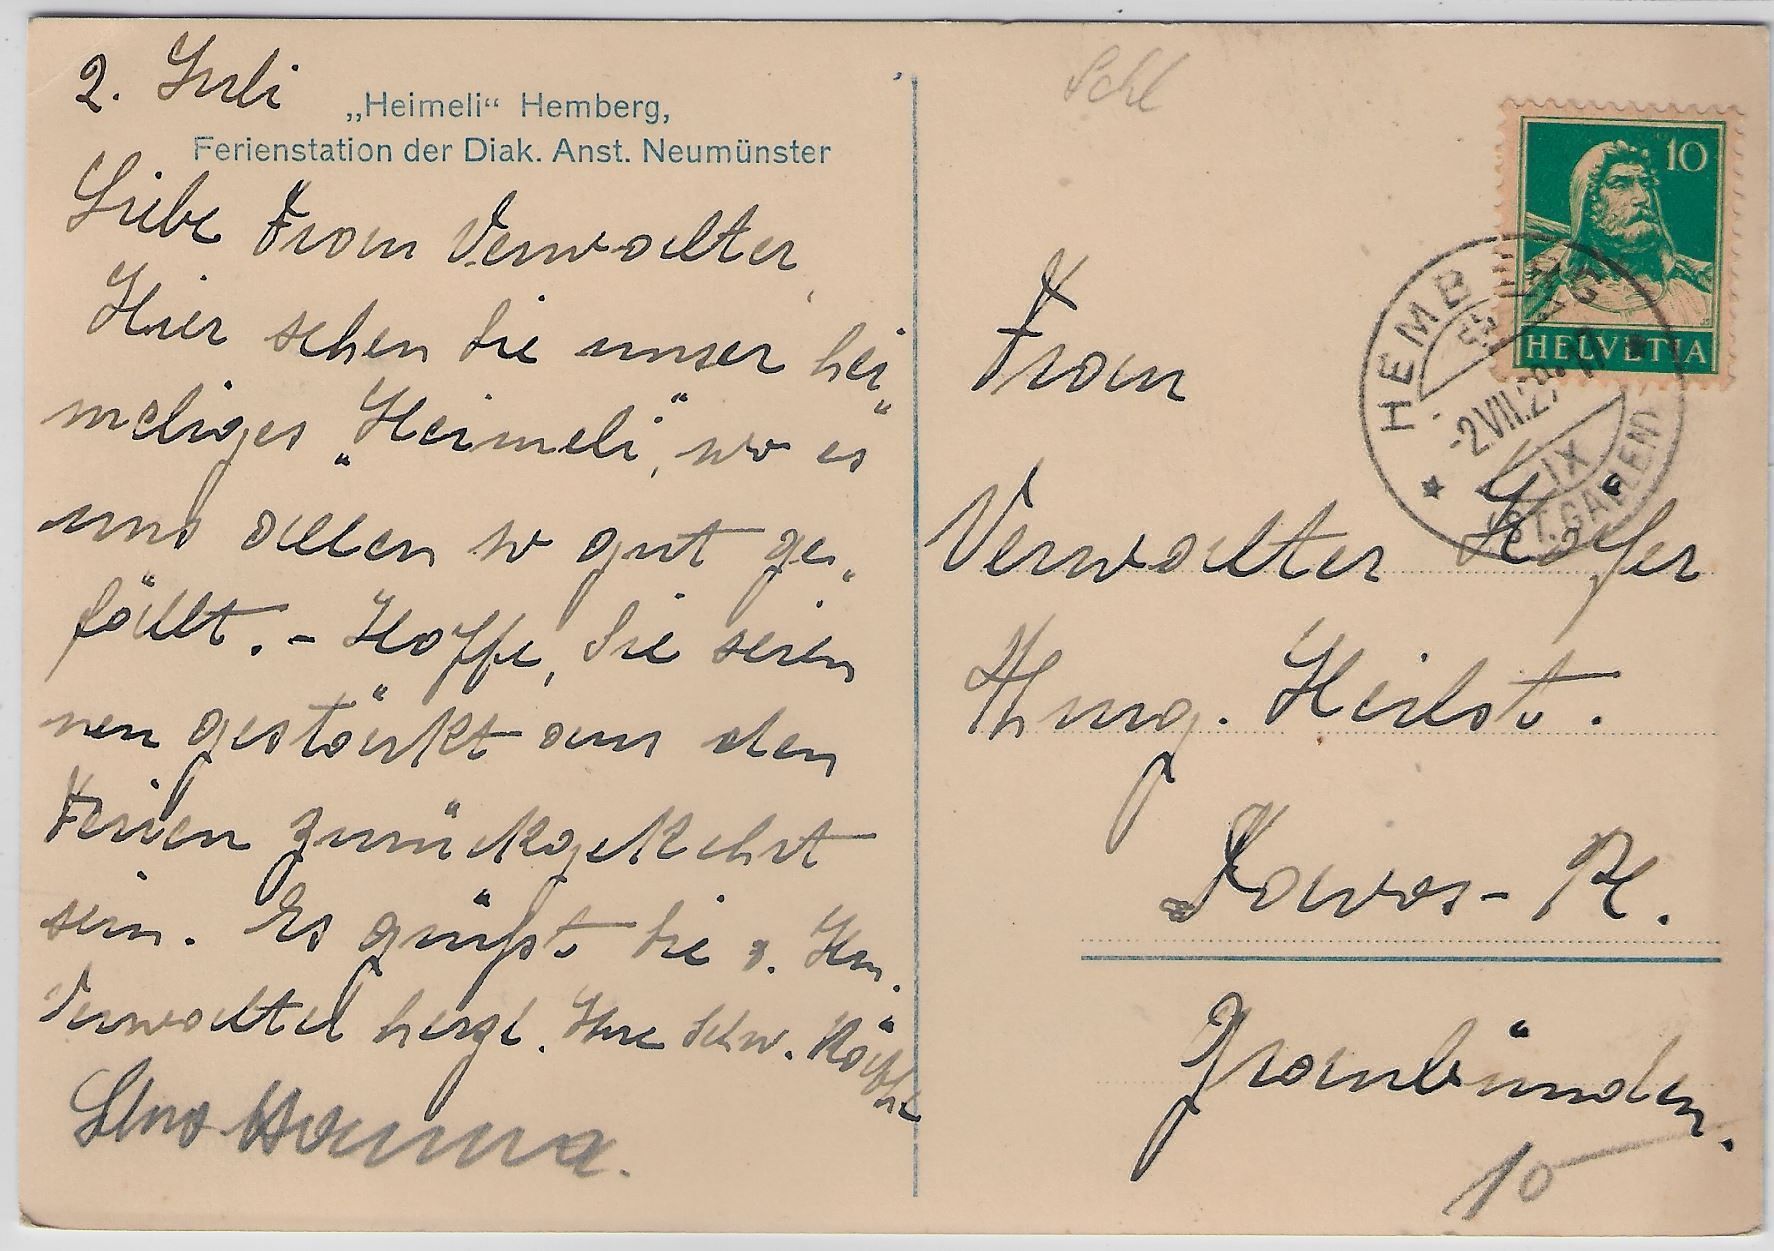 2. Juli
„Heimeli“ Hemberg,
Ferienstation der Diak. Anst. Neumünster
Liebe Frau Verwalter,
Hier sehen Sie unser hei-
meliges „Heimeli“, wo es
uns allen so gut ge-
fällt. – Hoffe, Sie seien
nen gestärkt aus den
Ferien zurückgekehrt
sein. Es grüßt Sie u. Hrn.
Verwalter herzl. Ihre Schw.
Schl
10
HELVETIA
HEMBERG
-2.VII.29.
IX
(ST.GALLEN)
Frau
Verwalter Hofer
Thurg. Heilst.
Davos-Pl.
Graubünden.
10